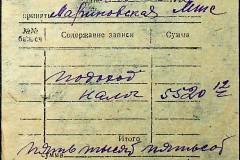 принять Мариновская
№№ Содержание записи Сумма
подоход
налог 5520 12
Итого
Пять тысяч пятьсот